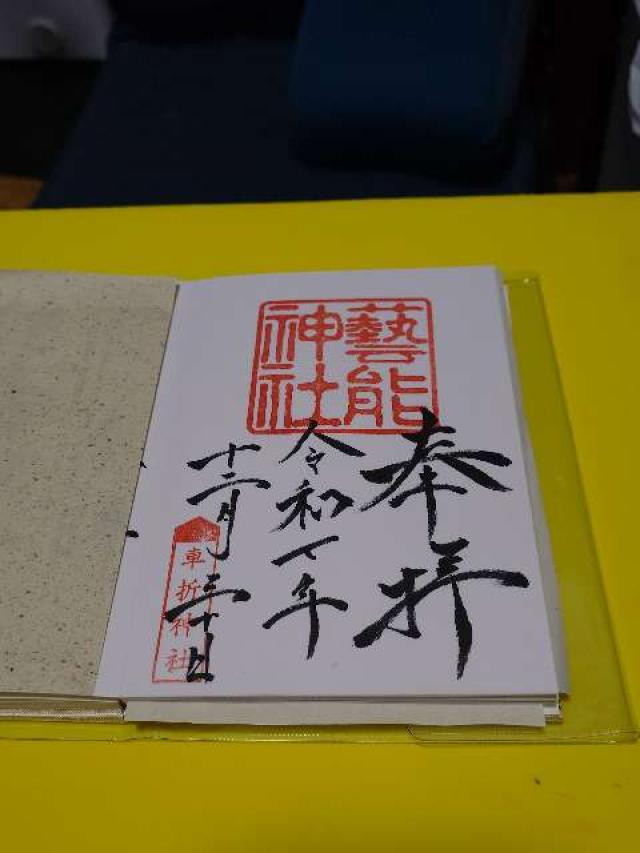 藝能
神社
奉拝
令和七年
十二月三十日
車折神社